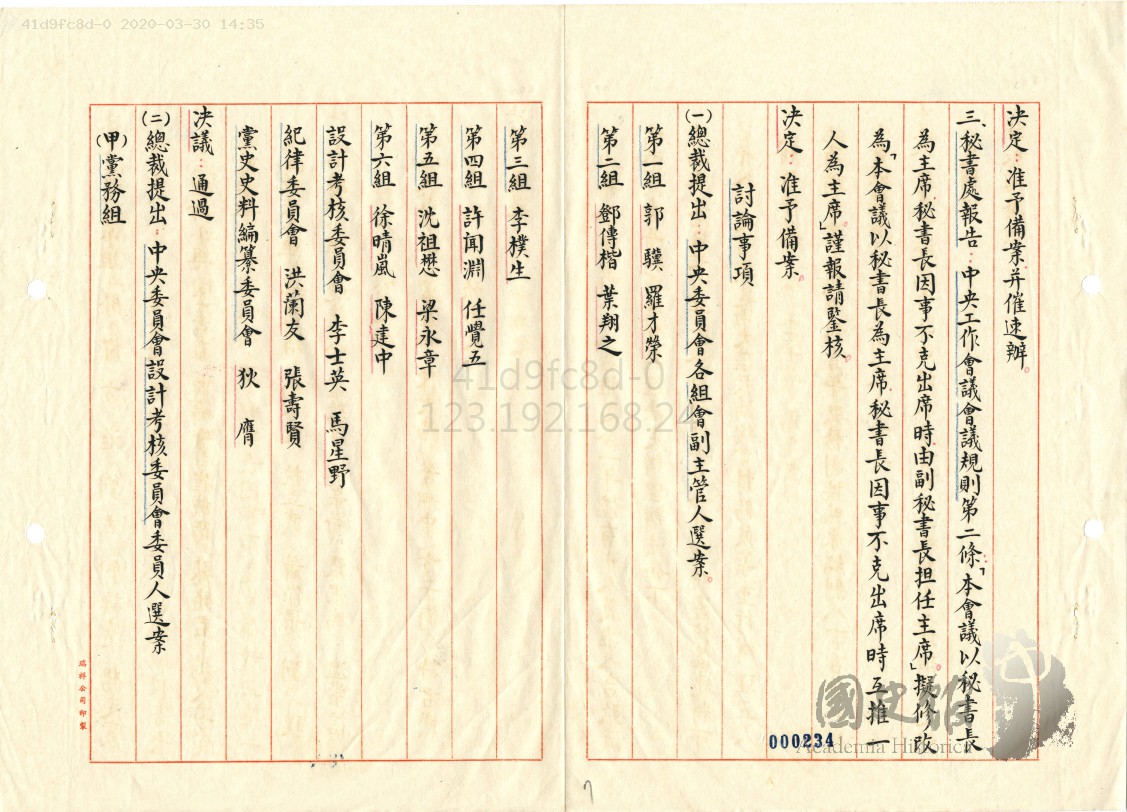 41d9fc8d-0 2020-03-30 14:35
決定：准予備案并催速辦。
三、秘書處報告：中央工作會議會議規則第二條「本會議以秘書長
為主席秘書長因事不克出席時由副秘書長担任主席」擬修改
為「本會議以秘書長為主席秘書長因事不克出席時互推一
人為主席」謹報請鑒核。
決定：准予備案。
討論事項
(一)總裁提出：中央委員會各組會副主管人選案。
第一組 郭驥 羅才榮
第二組 鄧傳楷 葉翔之
第三組 李樸生
第四組 許聞淵 任覺五
第五組 沈祖懋 梁永章
第六組 徐晴嵐 陳建中
設計考核委員會 李士英 馬星野
紀律委員會 洪蘭友 張壽賢
黨史史料編纂委員會 狄膺
決議：通過
(二)總裁提出：中央委員會設計考核委員會委員人選案
(甲)黨務組
瑞祥公司印製
000234
7
國史館
Academia Historica
41d9fc8d-0
123.192.168.24